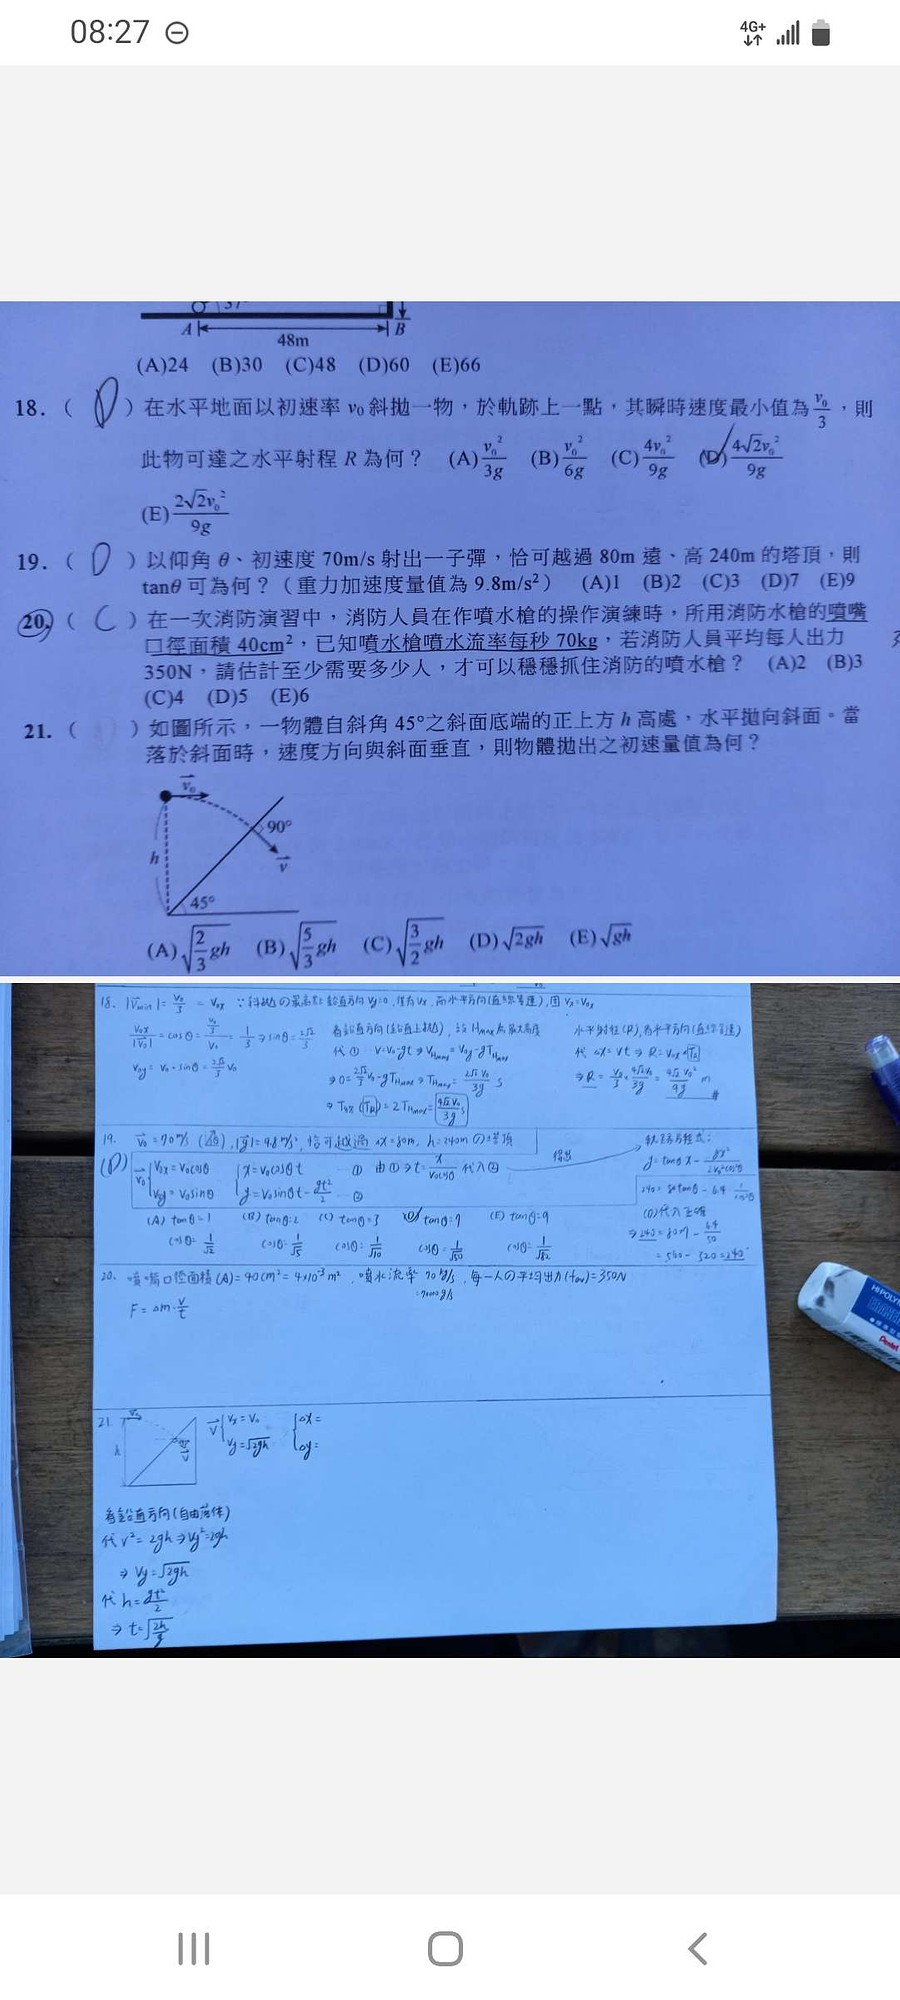 08:27
4G+
A
48m
B
(A)24 (B)30 (C)48 (D)60 (E)66
18. ( D ) 在水平地面以初速率 v₀ 斜拋一物，於軌跡上一點，其瞬時速度最小值為 v₀/3，則
此物可達之水平射程 R 為何？ (A) v₀²/3g (B) v₀²/6g (C) 4v₀²/9g (D) 4√2v₀²/9g
(E) 2√2v₀²/9g
19. ( D ) 以仰角 θ、初速度 70m/s 射出一子彈，恰可越過 80m 遠、高 240m 的塔頂，則
tanθ 可為何？（重力加速度量值為 9.8m/s²） (A)1 (B)2 (C)3 (D)7 (E)9
20. ( C ) 在一次消防演習中，消防人員在作噴水槍的操作演練時，所用消防水槍的噴嘴
口徑面積 40cm²，已知噴水槍噴水流率每秒 70kg，若消防人員平均每人出力
350N，請估計至少需要多少人，才可以穩穩抓住消防的噴水槍？ (A)2 (B)3
(C)4 (D)5 (E)6
21. ( ) 如圖所示，一物體自斜角 45°之斜面底端的正上方 h 高處，水平拋向斜面。當
落於斜面時，速度方向與斜面垂直，則物體拋出之初速量值為何？
v₀
90°
h
v
45°
(A) √(2/3 gh) (B) √(5/3 gh) (C) √(3/2 gh) (D) √2gh (E) √gh
18. |Vmin| = V₀/3 = V₀x ∵斜拋の最高點鉛直方向 Vy=0, 僅有 Vx, 而水平方向(直線等速), 因 Vx=V₀x
V₀x/|V₀| = cosθ = (V₀/3)/V₀ = 1/3 ⇒ sinθ = 2√2/3
看鉛直方向(鉛直上拋), 設 Hmax 為最大高度
水平射程(R), 為水平方向(直線等速)
V₀y = V₀·sinθ = 2√2/3 V₀
代① V=V₀-gt ⇒ VHmax = V₀y - gTHmax
代 △x = Vt ⇒ R = V₀x·TR
⇒ 0 = 2√2/3 V₀ - gTHmax ⇒ THmax = 2√2V₀/3g s
⇒ R = V₀/3 × 4√2V₀/3g = 4√2V₀²/9g m #
(TR) = 2THmax = 4√2V₀/3g s
19. V₀ = 70 m/s, |g| = 9.8 m/s², 恰可越過 △x=80m, h=240m の塔頂
軌跡方程式：
(D)
V₀ { V₀x = V₀cosθ
V₀y = V₀sinθ
{ x = V₀cosθ t ①
y = V₀sinθ t - gt²/2 ②
由①⇒ t = x/V₀cosθ 代入②
得出
y = tanθ x - gx²/2V₀²cos²θ
240 = 80tanθ - 6.4 1/cos²θ
(A) tanθ=1 (B) tanθ=2 (C) tanθ=3 (D) tanθ=7 (E) tanθ=9
(D)代入正確
cosθ = 1/√2 cosθ = 1/√5 cosθ = 1/√10 cosθ = 1/√50 cosθ = 1/√82
= 560 - 320 = 240
20. 噴嘴口徑面積(A) = 40cm² = 4×10⁻³m², 噴水流率 70 kg/s, 每一人の平均出力(fav) = 350N
= 70000g/s
F = △m·V/t
21.
V₀
h
V
V { Vx = V₀
Vy = √2gh
{ △x =
△y =
看鉛直方向(自由落体)
代 V² = 2gh ⇒ Vy² = 2gh
⇒ Vy = √2gh
代 h = gt²/2
⇒ t = √(2h/g)
HI-POLYMER
Pentel